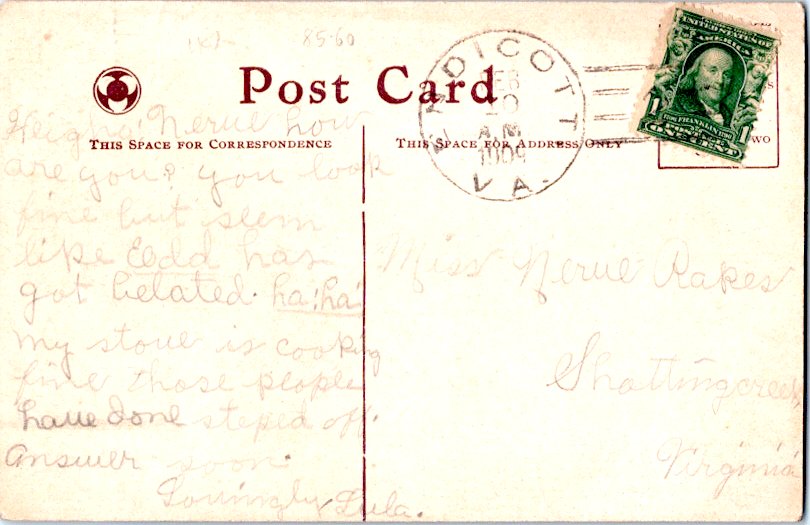 85-60
Post Card
THIS SPACE FOR CORRESPONDENCE
THIS SPACE FOR ADDRESS ONLY
ENDICOTT
FEB
10
A.M.
1909
VA.
UNITED STATES OF
AMERICA
1
FRANKLIN
1
ONE CENT
WO
Heigho! Nerve how
are you? you look
fine but seem
like Edd has
got belated. ha! ha!
my stove is cooking
fine those people
have done steped off.
Answer soon.
Lovingly Lula.
Miss Nerve Rakes
Shottingcreek,
Virginia